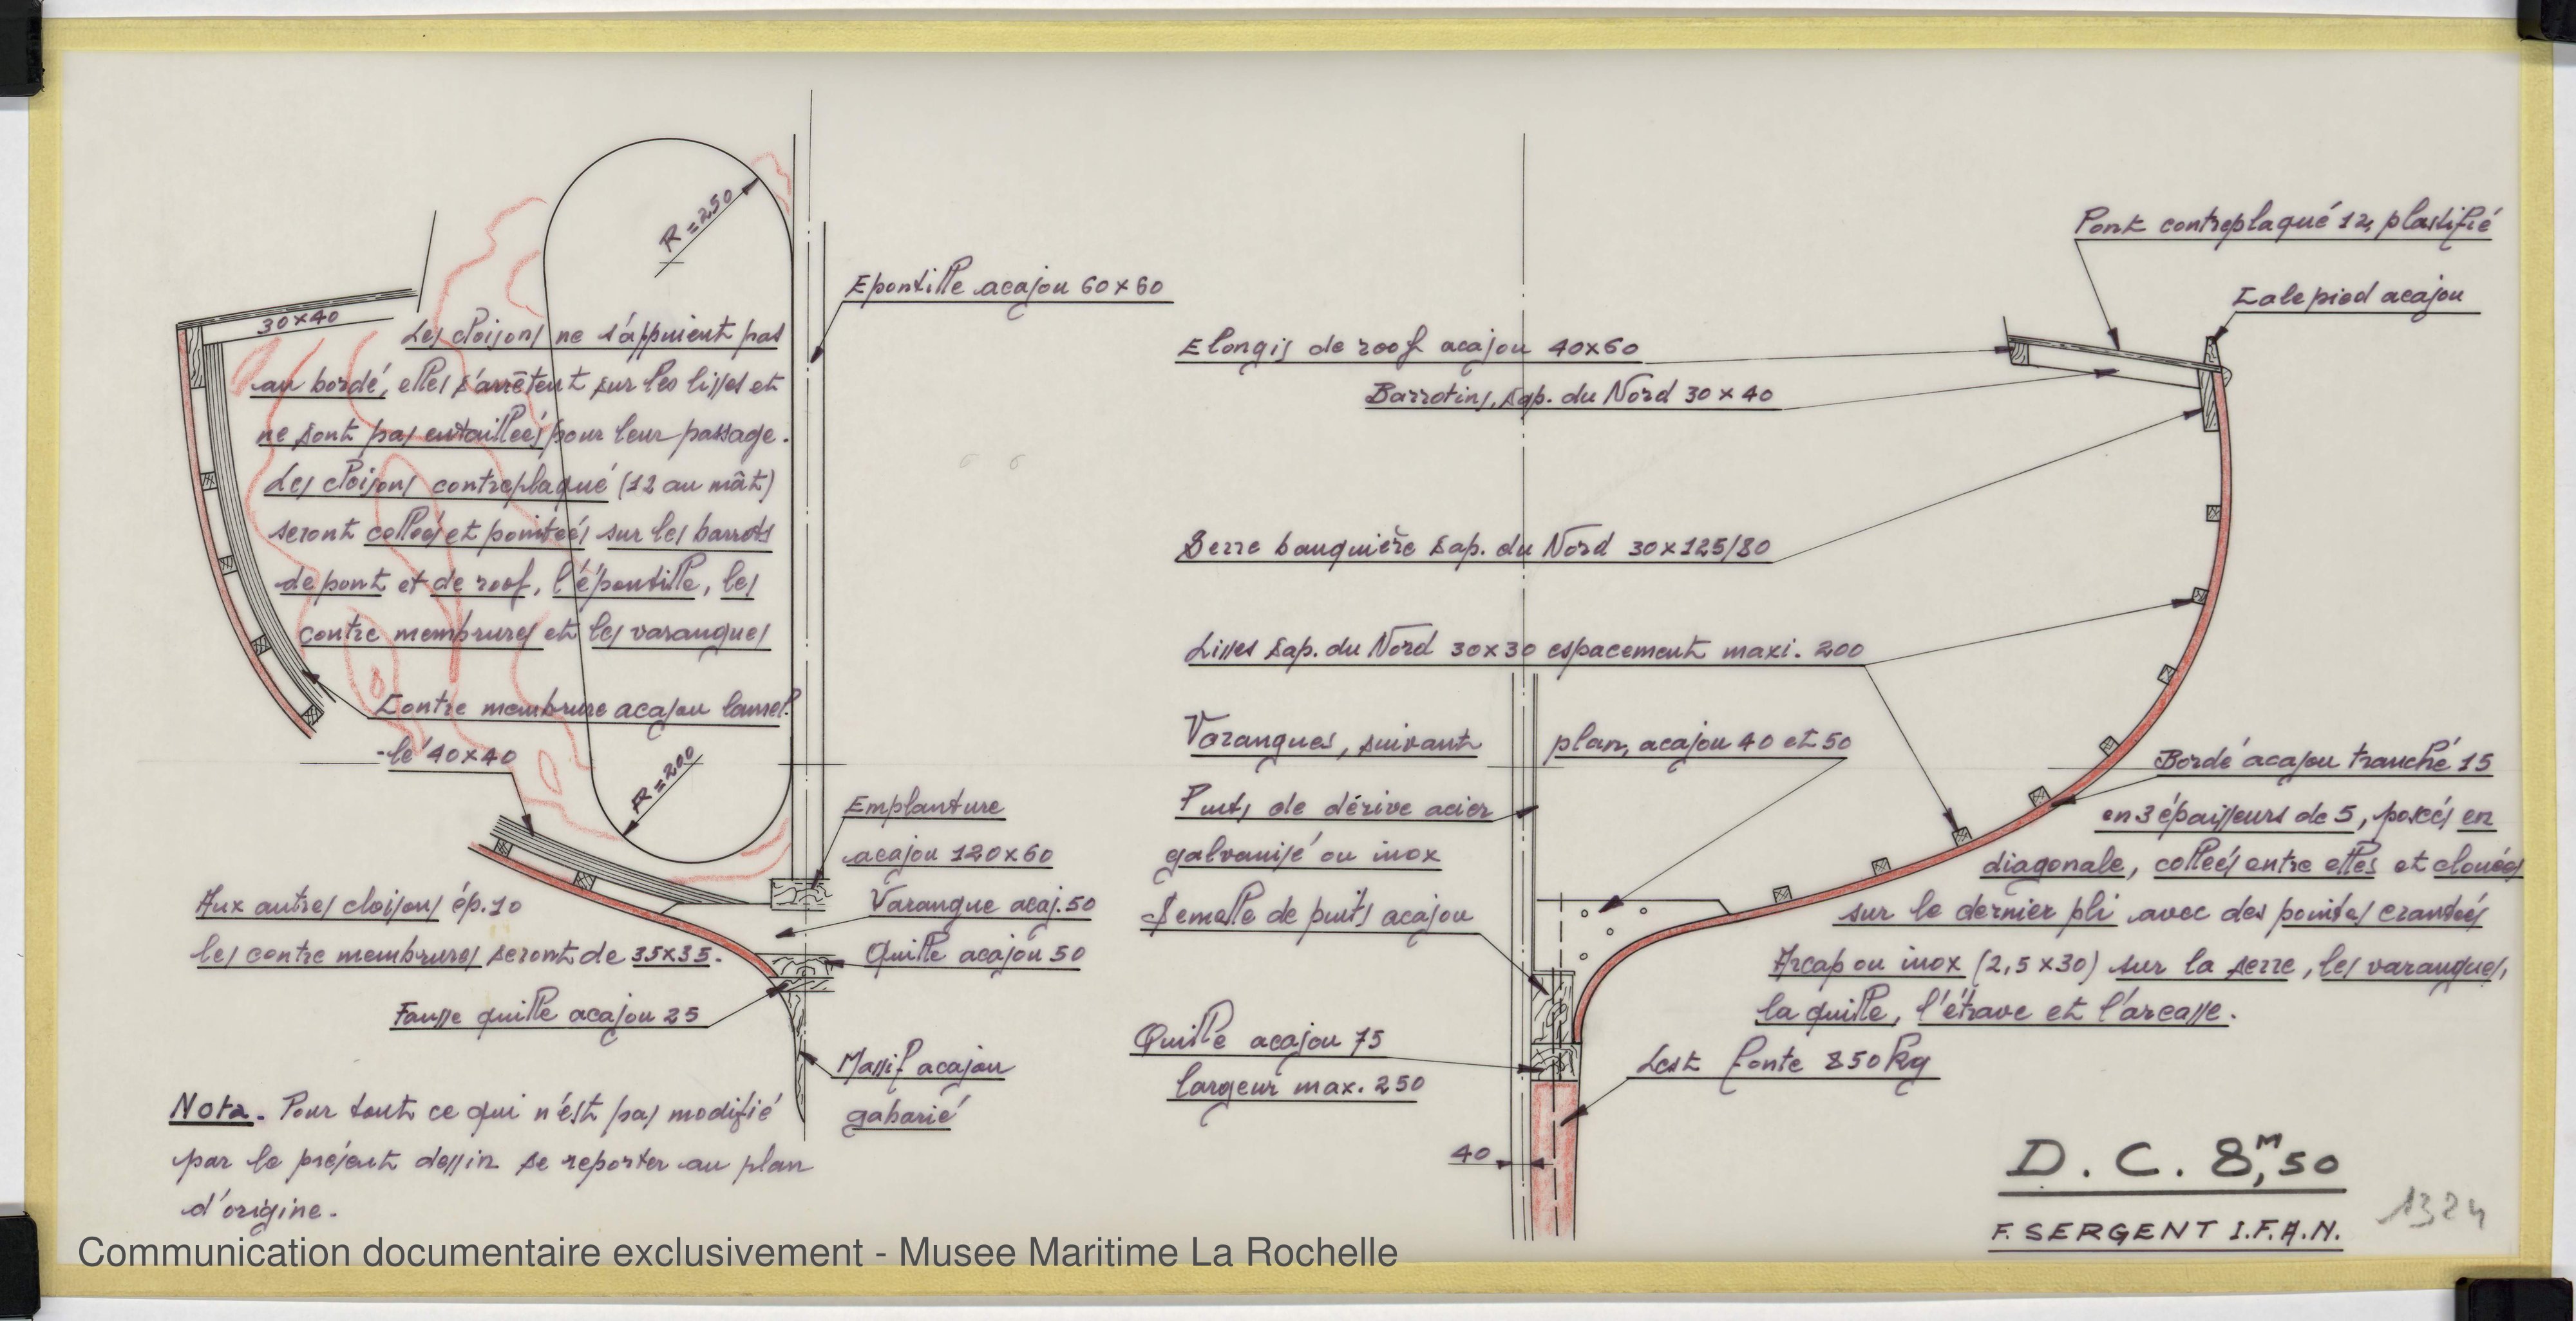 R=250
30x40
Les cloisons ne s'appuient pas
au bordé, elles s'arrêtent sur les lisses et
ne sont pas entaillées pour leur passage.
Les cloisons contreplaqué (12 au mât)
seront collées et pointées sur les barrots
de pont et de roof, l'épontille, les
contre membrures et les varangues
Contre membrure acajou lamel-
-lé 40x40
R=200
Epontille acajou 60x60
Emplanture
acajou 120x60
Varangue acaj. 50
Quille acajou 50
Aux autres cloisons ép. 10
les contre membrures seront de 35x35.
Fausse quille acajou 25
Massif acajou
gabarié
Nota. Pour tout ce qui n'est pas modifié
par le présent dessin se reporter au plan
d'origine.
Pont contreplaqué 12, plastifié
Cale pied acajou
Elongis de roof acajou 40x60
Barrotins, sap. du Nord 30x40
Serre bauquière sap. du Nord 30x125/80
Lisses sap. du Nord 30x30 espacement maxi. 200
Varangues, suivant plan, acajou 40 et 50
Puits de dérive acier
galvanisé ou inox
Semelle de puits acajou
Quille acajou 75
largeur max. 250
40
Bordé acajou tranché 15
en 3 épaisseurs de 5, posées en
diagonale, collées entre elles et clouées
sur le dernier pli avec des pointes crantées
Arcap ou inox (2,5x30) sur la serre, les varangues,
la quille, l'étrave et l'arcasse.
Lest fonte 850 kg
D. C. 8,M50
F. SERGENT I.F.A.N.
1324
Communication documentaire exclusivement - Musee Maritime La Rochelle